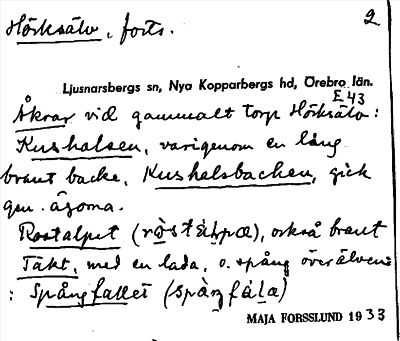 Hörksälv, forts. 2
Ljusnarsbergs sn, Nya Kopparbergs hd, Örebro län.
E 43
Åkrar vid gammalt torp Hörksälv:
Kushalsen, varigenom en lång
brant backe, Kushalsbacken, gick
gen. ägorna.
Rostalpet (ròstàl̥pœ), också brant
Täkt, med en lada, o. spång över älven
: Spångfallet (spàŋfàl̥a)
MAJA FORSSLUND 1933